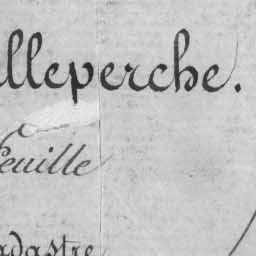 alleperche.
Feuille
adastre